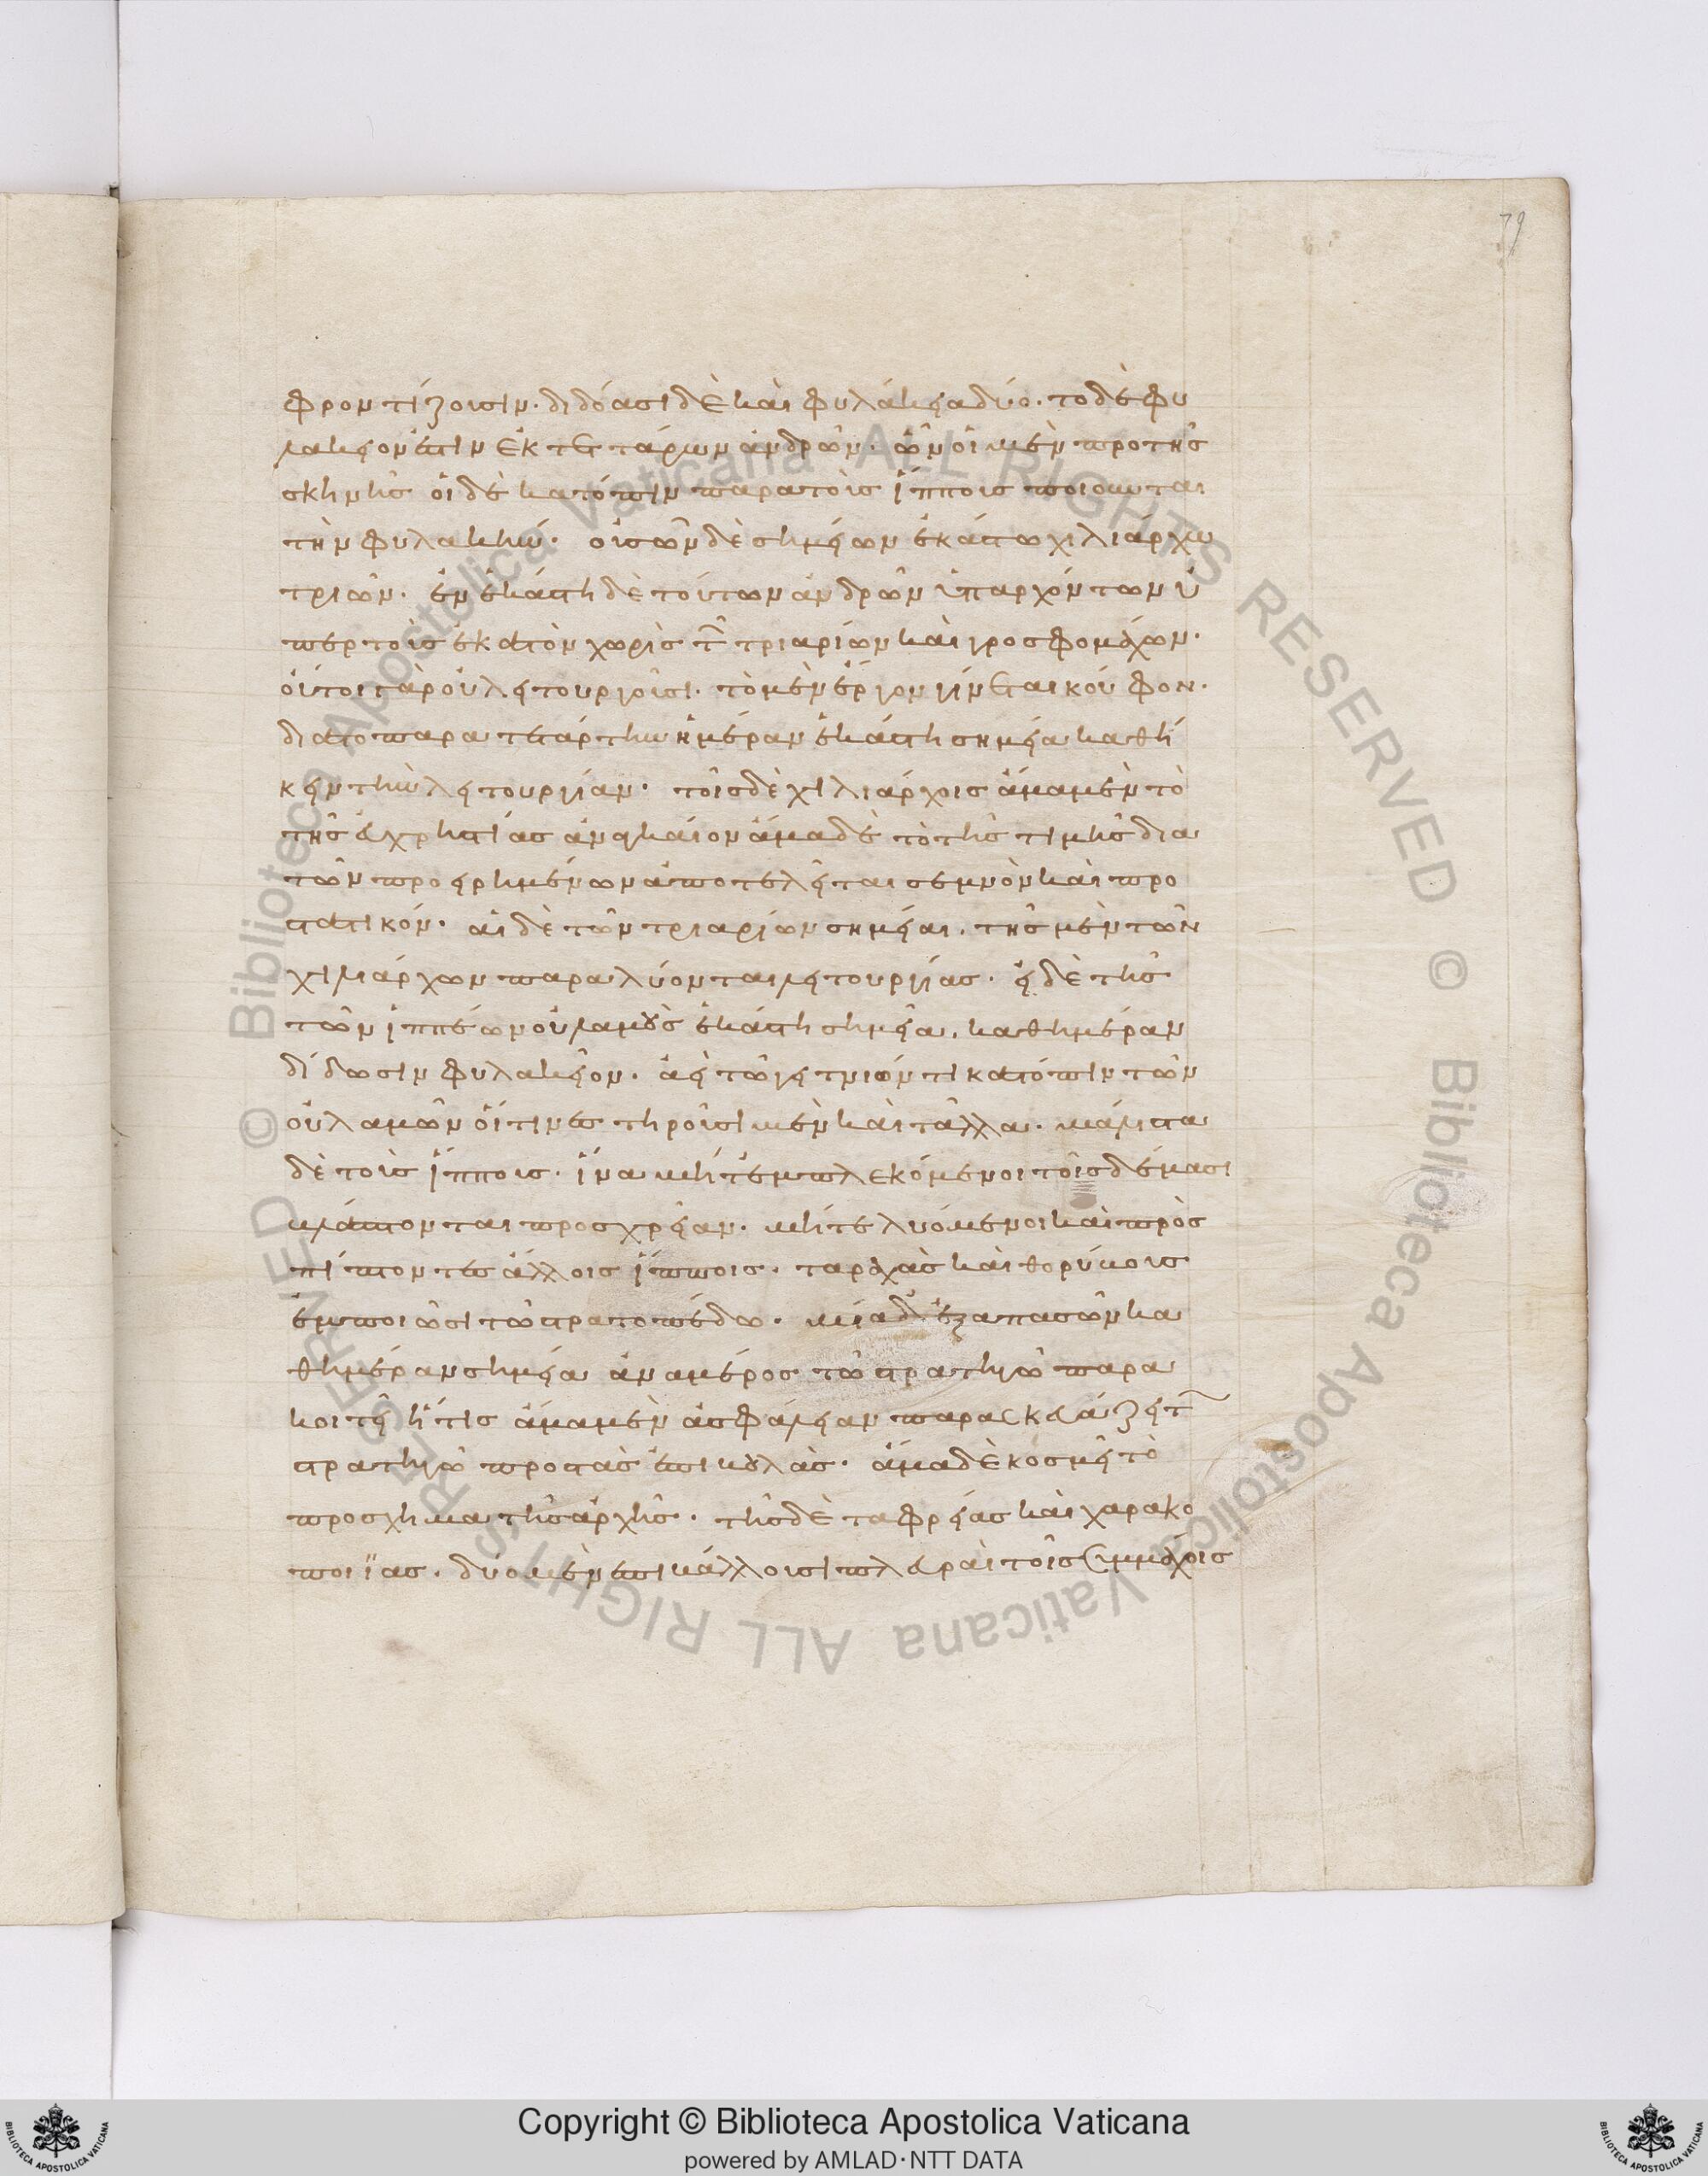 79
φροντίζουσιν. διδόασι δὲ καὶ φυλακεῖα δύο. τὸ δὲ φυ
λακεῖόν ἐστιν ἐκ τεττάρων ἀνδρῶν. ὧν οἱ μὲν πρὸ τῆς
σκηνῆς οἱ δὲ κατόπιν παρὰ τοῖς ἵπποις ποιοῦνται
τὴν φυλακήν. οὐσῶν δὲ σημείων ἑκάστω χιλιάρχω
τριῶν. ἐν ἑκάστη δὲ τούτων ἀνδρῶν ὑπαρχόντων ὑ
πὲρ τοὺς ἑκατὸν χωρὶς τῶν τριαρίων καὶ γροσφομάχων.
οὗτοι γὰρ οὐ λειτουργοῦσι. τὸ μὲν ἔργον γίνεται κοῦφον.
διὰ τὸ παρὰ τετάρτην ἡμέραν ἑκάστη σημεία καθή
κειν τὴν λειτουργίαν. τοῖς δὲ χιλιάρχοις ἅμα μὲν τὸ
τῆς εὐχρηστίας ἀναγκαῖον ἅμα δὲ τὸ τῆς τιμῆς διὰ
τῶν προειρημένων ἀποτελεῖται σεμνὸν καὶ προ
στατικόν. αἱ δὲ τῶν τριαρίων σημεῖαι. τῆς μὲν τῶν
χιλιάρχων παραλύονται λειτουργίας. εἰ δὲ τῆς
τῶν ἱππέων οὐλαμοὺς ἑκάστη σημεία. καθημέραν
δίδωσιν φυλακεῖον. ἀεὶ τῶ γειτνιῶντι κατόπιν τῶν
οὐλαμῶν οἵτινες τηροῦσι μὲν καὶ τἄλλα. μάλιστα
δὲ τοὺς ἵππους. ἵνα μήτ' ἐμπλεκόμενοι τοῖς δέμασι
βλάπτονται πρὸς χρείαν. μήτε λυόμενοι καὶ πρὸσ
πίπτοντες ἄλλοις ἵπποις. ταραχὰς καὶ θορύβους
ἐμποιῶσι τῶ στρατοπέδω. μία δ' ἐξ ἁπασῶν κα
θημέραν σημεία ἀνὰ μέρος τῶ στρατηγῶ παρα
κοιτεῖ ἥτις ἅμα μὲν ἀσφάλειαν παρασκευάζει τῶ
στρατηγῶ πρὸς τὰς ἐπιβουλὰς. ἅμα δὲ κοσμεῖ τὸ
πρόσχημα τῆς ἀρχῆς. τῆς δὲ ταφρείας καὶ χαρακο
ποιΐας. δύο μὲν ἐπιβάλλουσι πλευραὶ τοῖς συμμάχοις
Copyright © Biblioteca Apostolica Vaticana
powered by AMLAD·NTT DATA